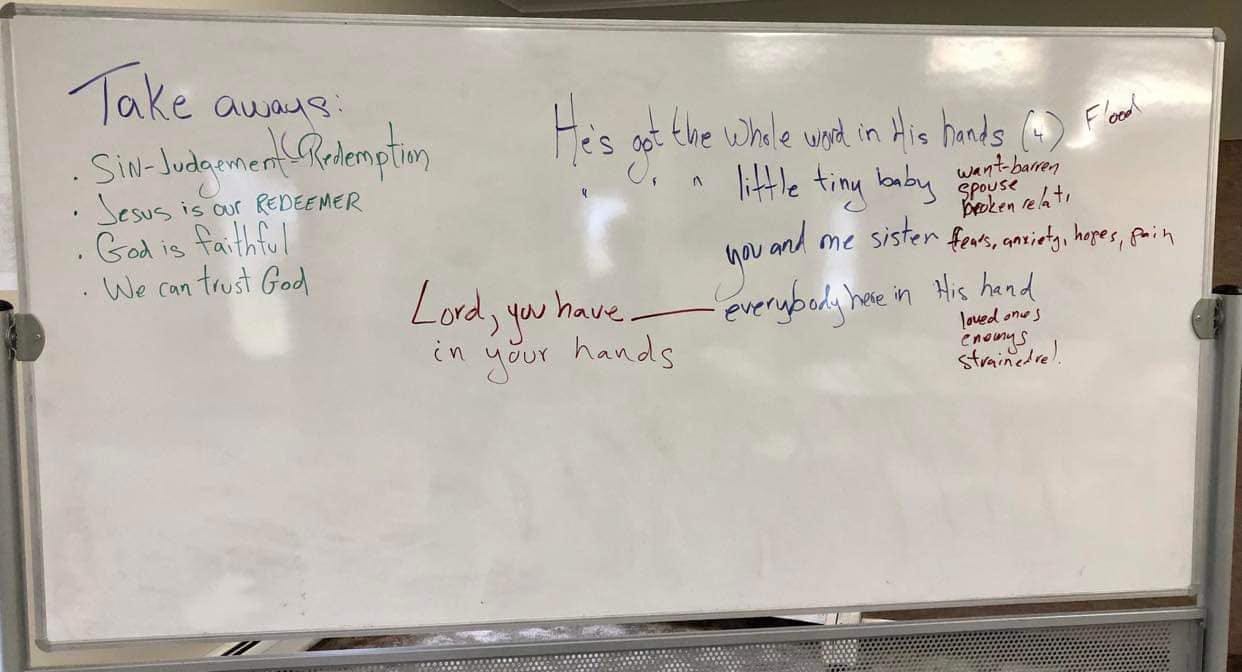 Take aways:
• SiN-Judgement-(Redemption
• Jesus is our REDEEMER
• God is faithful
• We can trust God
He's got the whole word in His hands (4) Flood
" " " little tiny baby
want-barren
spouse
broken relat,
you and me sister fears, anxiety, hopes, pain
everybody here in His hand
loved ones
enemys
strained rel.
Lord, you have ——
in your hands